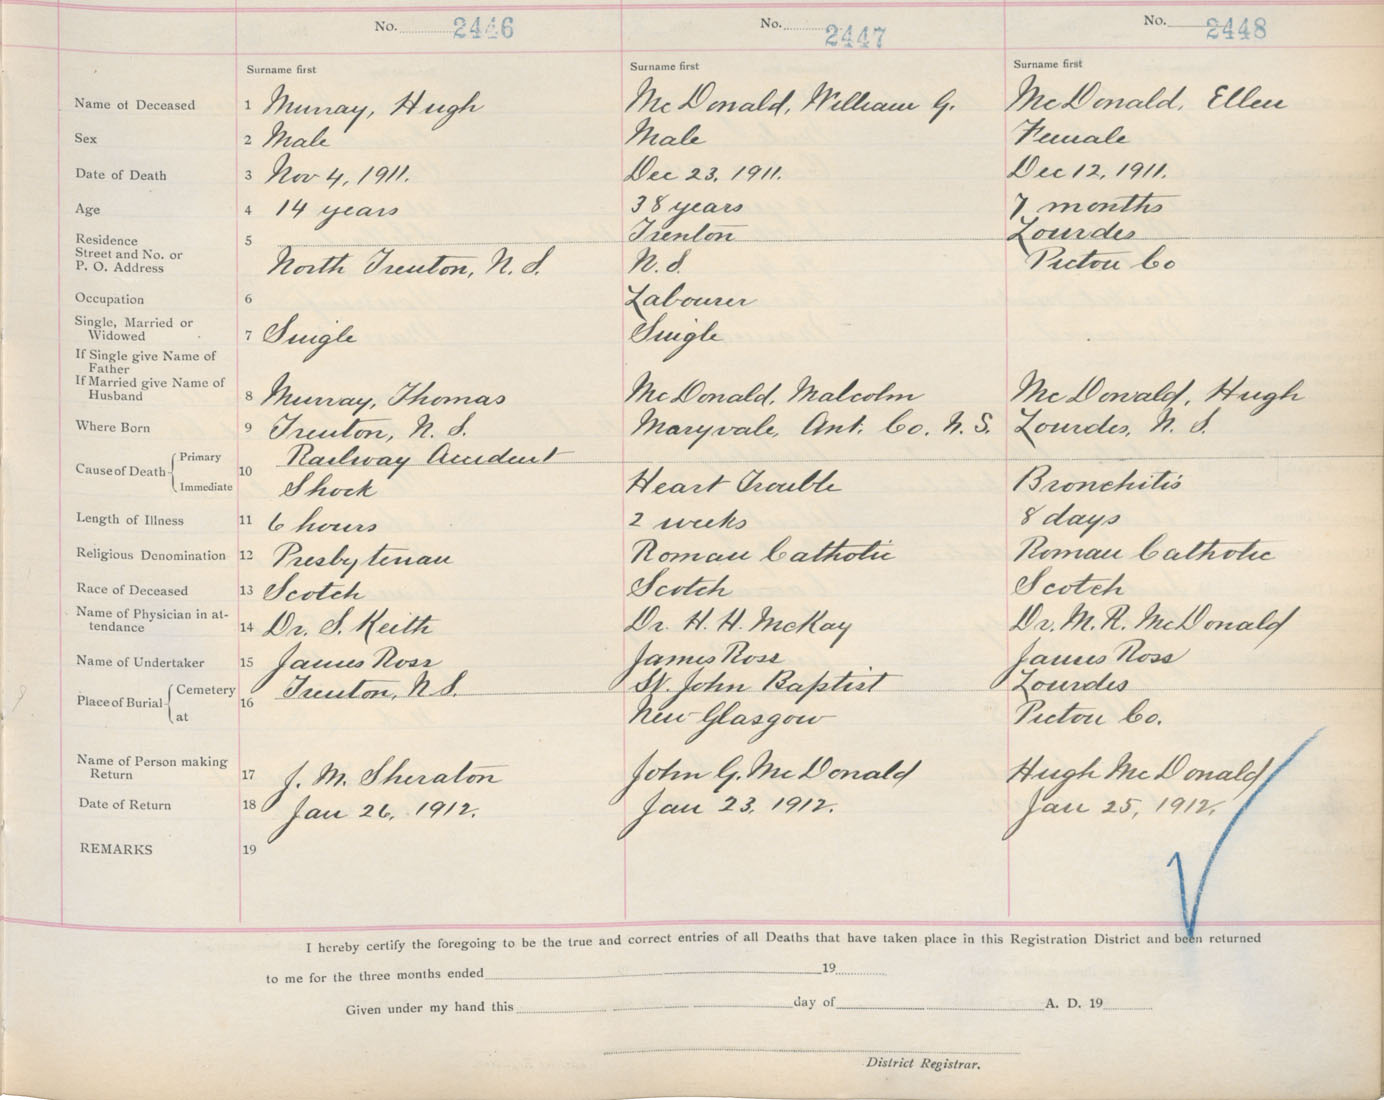 No. 2446 No. 2447 No. 2448
Surname first Surname first Surname first
Name of Deceased 1 Murray, Hugh McDonald, William G. McDonald, Ellen
Sex 2 Male Male Female
Date of Death 3 Nov 4, 1911. Dec 23, 1911. Dec 12, 1911.
Age 4 14 years 38 years 7 months
Residence 5 Trenton Lourdes
Street and No. or
P. O. Address North Trenton, N. S. N. S. Pictou Co
Occupation 6 Labourer
Single, Married or
Widowed 7 Single Single
If Single give Name of
Father
If Married give Name of
Husband 8 Murray, Thomas McDonald, Malcolm McDonald, Hugh
Where Born 9 Trenton, N. S. Maryvale, Ant. Co. N. S. Lourdes, N. S.
Primary Railway Accident
Cause of Death 10
Immediate Shock Heart Trouble Bronchitis
Length of Illness 11 6 hours 2 weeks 8 days
Religious Denomination 12 Presbyterian Roman Catholic Roman Catholic
Race of Deceased 13 Scotch Scotch Scotch
Name of Physician in at-
tendance 14 Dr. S. Keith Dr. H. H. McKay Dr. M. R. McDonald
Name of Undertaker 15 James Ross James Ross James Ross
Cemetery Trenton, N S. St. John Baptist Lourdes
Place of Burial 16
at New Glasgow Pictou Co.
Name of Person making
Return 17 J. M. Sheraton John G. McDonald Hugh McDonald
Date of Return 18 Jan 26, 1912. Jan 23, 1912. Jan 25, 1912.
REMARKS 19
I hereby certify the foregoing to be the true and correct entries of all Deaths that have taken place in this Registration District and been returned
to me for the three months ended 19
Given under my hand this day of A. D. 19
District Registrar.